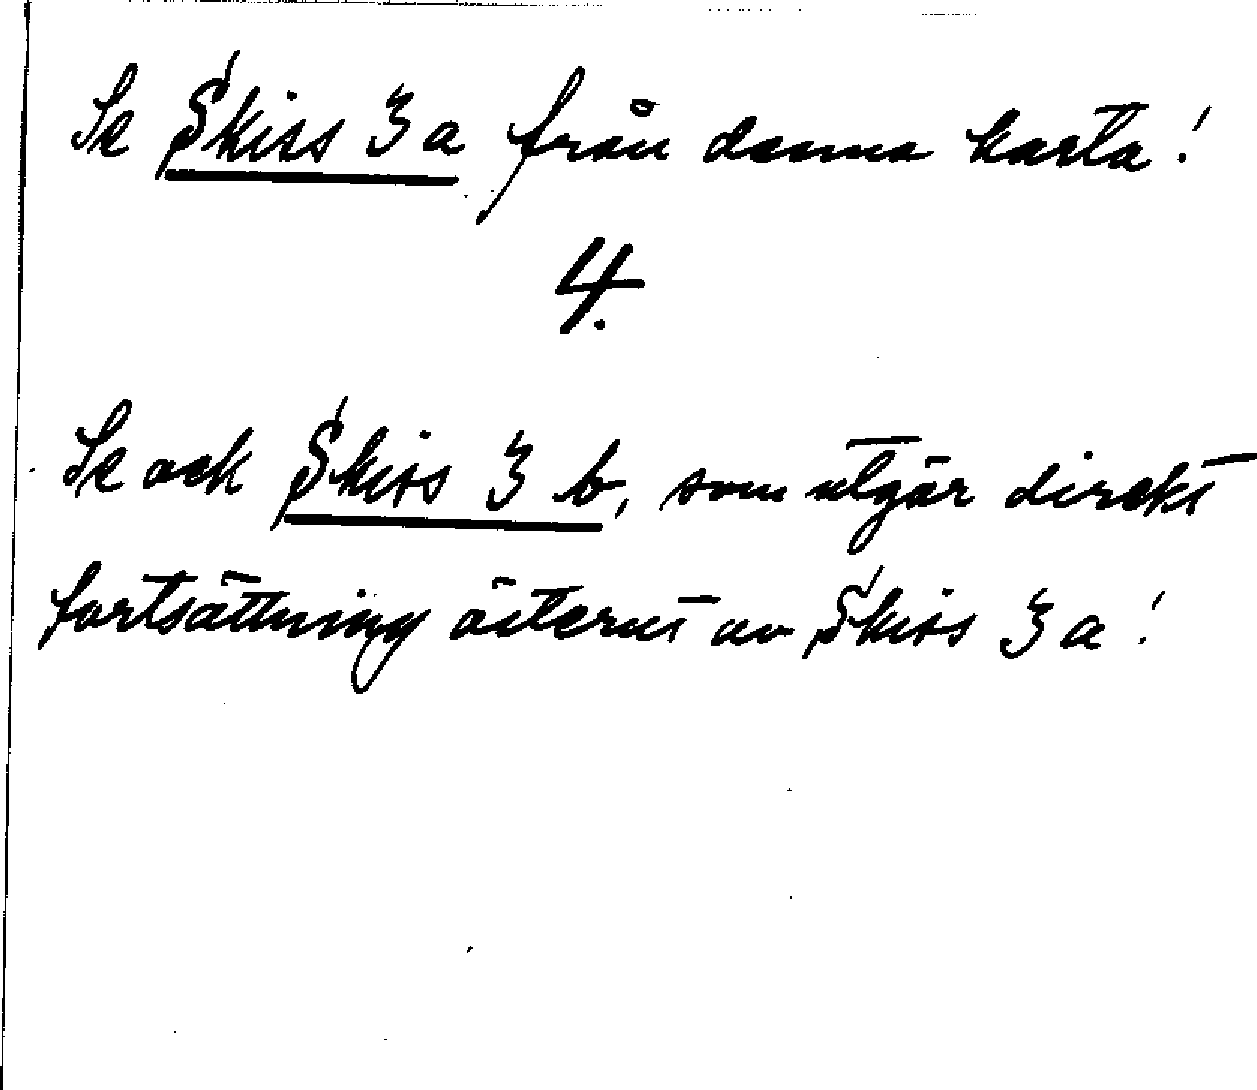 Se Skiss 3 a från denna karta!
4.
Se ock Skiss 3 b, som utgör direkt
fortsättning österut av Skiss 3 a!